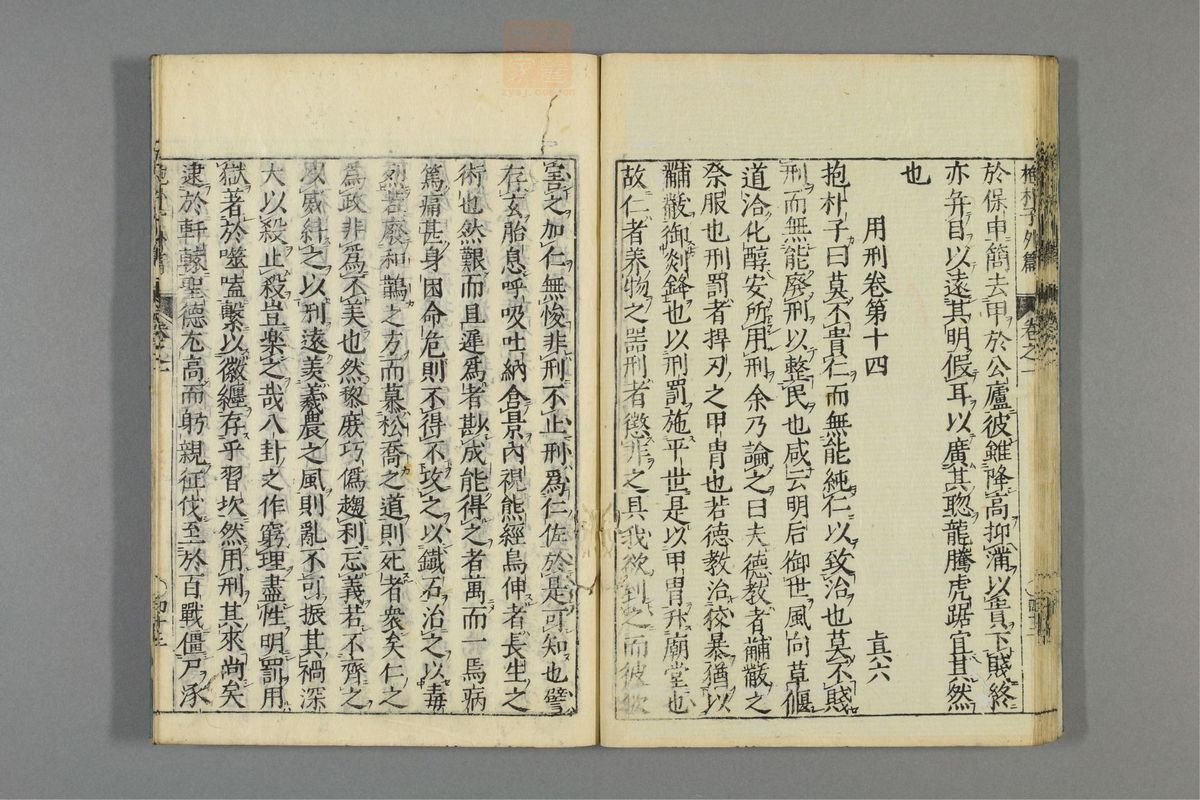 抱朴子外篇 卷之二
於保申簡去甲於公廬彼雖降高抑滿以貴下賤終
亦并目以遠其明假耳以廣其聡龍騰虎踞宜其然
也
用刑卷第十四 真六
抱朴子曰莫不貴仁而無能純仁以致治也莫不賤
刑而無能廢刑以整民也咸云明后御世風向草偃
道洽化醇安所用刑余乃論之曰夫德教者黼黻之
祭服也刑罰者捍刃之甲冑也若德教治狡暴猶以
黼黻御剡鋒也以刑罰施平世是以甲冑升廟堂也
故仁者养物之器刑者懲非之具我欲利之而彼欲
害之加仁無悛非刑不止刑爲仁佐於是可知也譬
存玄胎息呼吸吐納含景內視熊經鳥伸者長生之
術也然艱而且遲爲者尠成能得之者萬而一焉病
篤痛甚身困命危則不得不攻之以鐵石治之以毒
烈若廢和鵲之方而慕松喬之道則死者衆矣仁之
爲政非爲不美也然黎庶巧僞趨利忘義若不齊之
以威糾之以刑遠羨羲農之風則亂不可振其禍深
大以殺止殺豈樂之哉八卦之作窮理盡性明罰用
獄著於噬嗑繫以徽纆存乎習坎然用刑其來尚矣
逮於軒轅聖德尤高而躬親征伐至於百戰僵尸涿